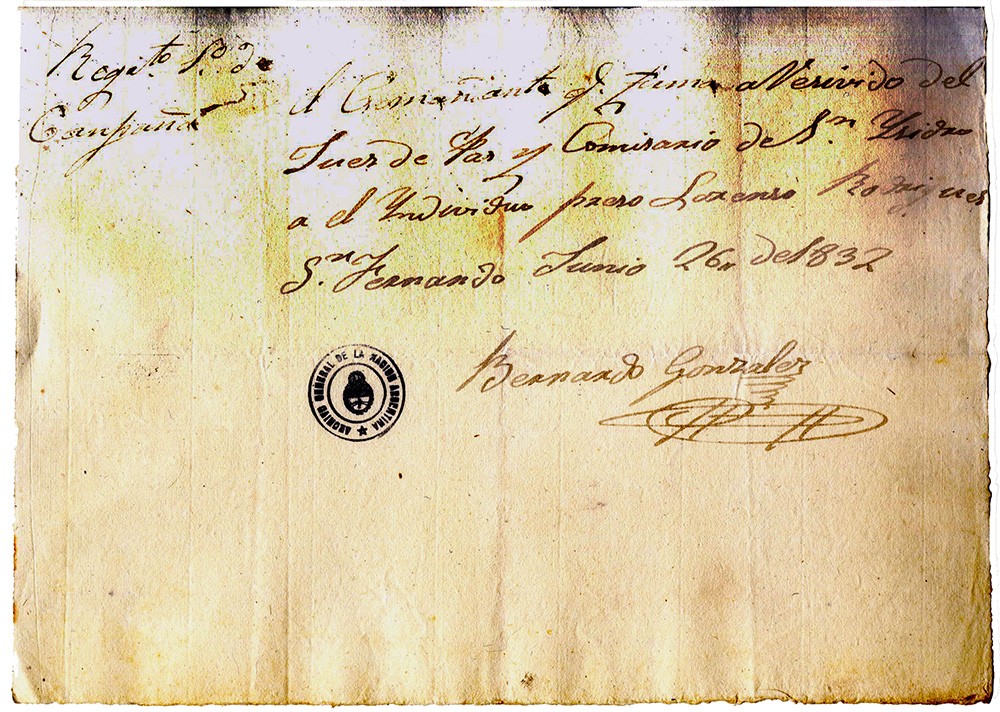 Regto. 1o. de
Canpaña
el Comañante qe. firma a Resivido del
Jues de Pas y Comisario de Sn. Ysidro
a el Yndividuo preso Lorenso Rodrigues
Sn. Fernando Junio 26,, de 1832
Bernardo Gonzales
ARCHIVO GENERAL DE LA NACION ARGENTINA